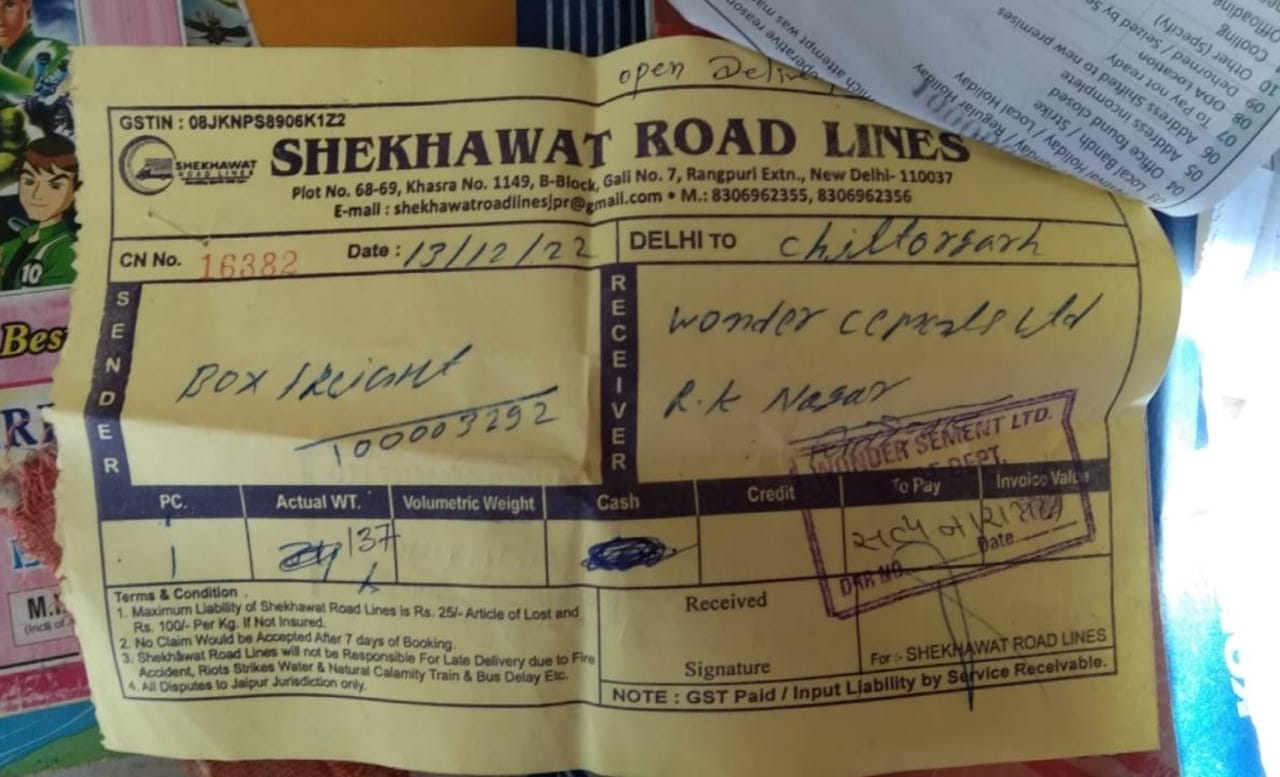 open Deliver
GSTIN : 08JKNPS8906K1Z2
SHEKHAWAT
ROAD LINES
SHEKHAWAT ROAD LINES
Plot No. 68-69, Khasra No. 1149, B-Block, Gali No. 7, Rangpuri Extn., New Delhi- 110037
E-mail : shekhawatroadlinesjpr@gmail.com • M.: 8306962355, 8306962356
CN No. 16382 Date : 13/12/22 DELHI TO Chittorgarh
SENDER
Box freight
100003292
RECEIVER
Wonder Cements Ltd
R.K Nagar
WONDER SEMENT LTD.
DEPT.
PC. Actual WT. Volumetric Weight Cash Credit To Pay Invoice Value
1 137
Date
DAR NO.
Terms & Condition
1. Maximum Liability of Shekhawat Road Lines is Rs. 25/- Article of Lost and
Rs. 100/- Per Kg. If Not Insured.
2. No Claim Would be Accepted After 7 days of Booking.
3. Shekhawat Road Lines will not be Responsible For Late Delivery due to Fire
Accident, Riots Strikes Water & Natural Calamity Train & Bus Delay Etc.
4. All Disputes to Jaipur Jurisdiction only.
Received
Signature
For :- SHEKHAWAT ROAD LINES
NOTE : GST Paid / Input Liability by Service Receivable.
Local Holiday
Regular Holiday
Local Bandh / Strike
04 Office Found closed
05 Address incomplete
06 Address Shifted to new premises
07 To Pay not ready
08 ODA Location
09 Dehorned / Seized by
10 Other (Specify)
Cooling
10
Best